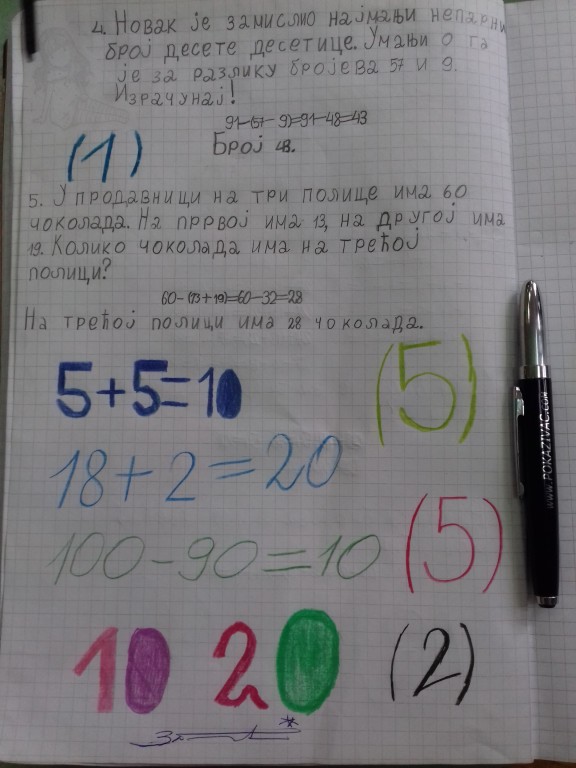 4. Новак је замислио најмањи непарни
број десете десетице. Умањи о га
је за разлику бројева 57 и 9.
Израчунај!
91-(57-9)=91-48=43
Број 43.
(1)
5. У продавници на три полице има 60
чоколада. На прврој има 13, на другој има
19. Колико чоколада има на трећој
полици?
60-(13+19)=60-32=28
На трећој полици има 28 чоколада.
5+5=10
(5)
18+2=20
100-90=10
(5)
10 20
(2)
www.POKAZIVAC.COM